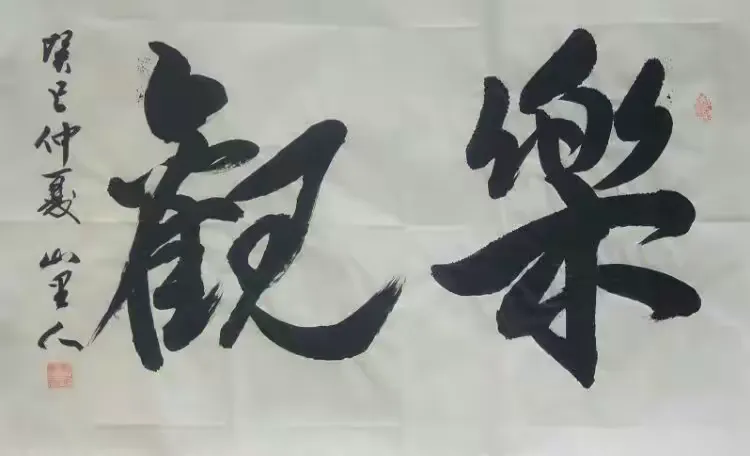 樂觀
癸巳仲夏 山里人